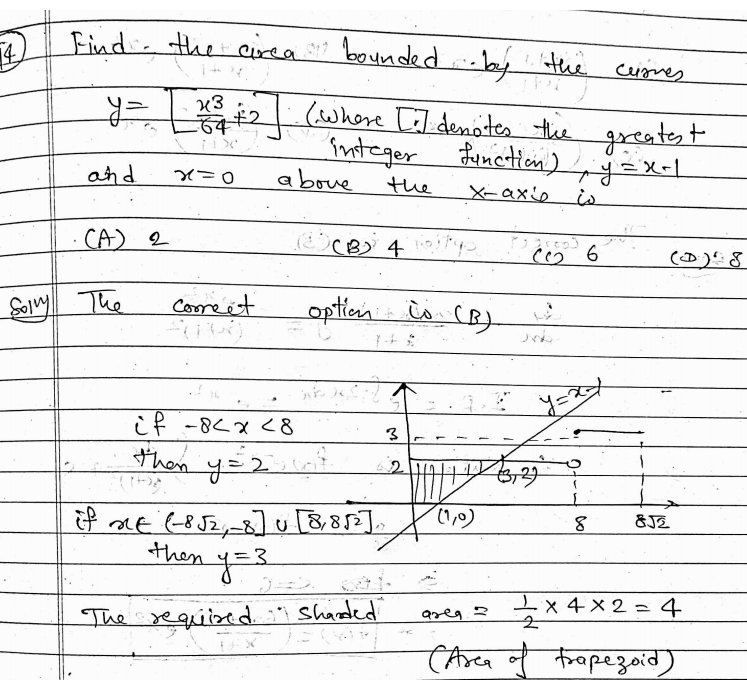 14
Find the area bounded by the curves
y = [x³/64 + 2] (where [.] denotes the greatest
integer function), y = x-1
and x=0 above the x-axis is
(A) 2 (B) 4 (C) 6 (D) 8
Soln The correct option is (B)
y=x-1
if -8<x<8
then y=2
3
2
(3,2)
(1,0)
8
8√2
if x∈ (-8√2,-8] ∪ [8,8√2]
then y=3
The required shaded area = 1/2 × 4 × 2 = 4
(Area of trapezoid)